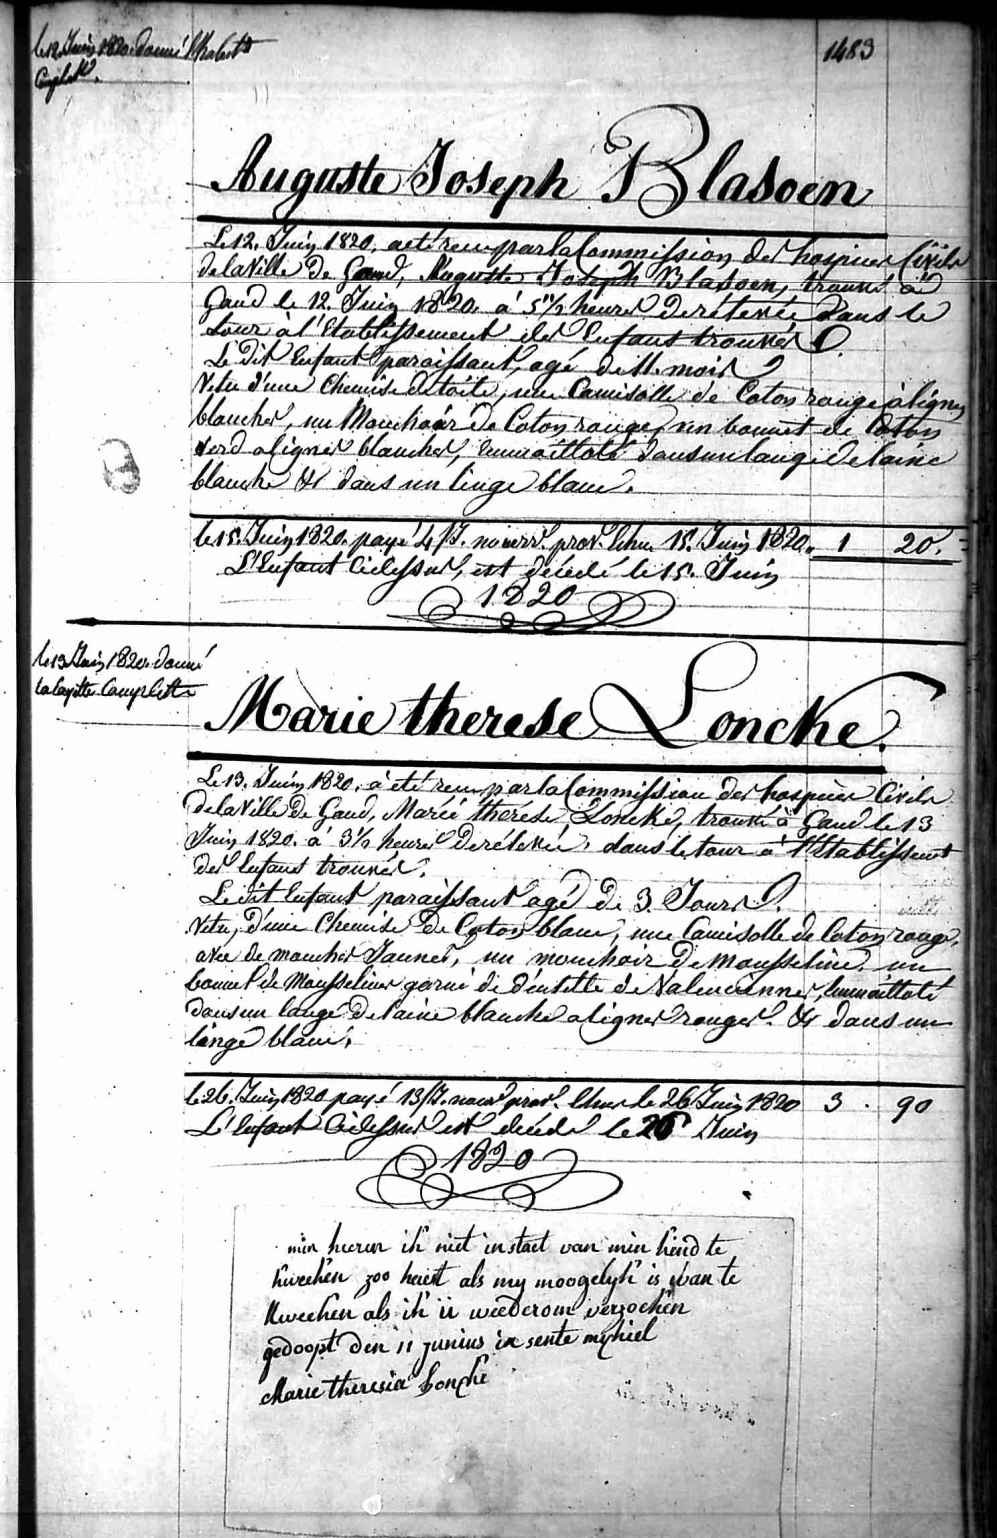 le 12. Juin 1820. donné l'habit
Complet.
1483
Auguste Joseph Blasoen
Le 12. Juin 1820. a eté reçu par la Commission des hospices Civils
de la Ville de Gand, Auguste Joseph Blasoen, trouvé à
Gand le 12. Juin 1820. à 5 1/2 heures De rélevée dans le
tour à l'Etablissement des Enfans trouvés
Le Dit Enfant paraissant agé de 11. mois
Vetu d'une Chemise de toile, une Camisolle de Coton rouge à lignes
blanches, un Mouchoir de Coton rouge, un bonnet de Coton
verd a lignes blanches, Emmaillotté dans un lange de laine
blanche & dans un linge blanc.
le 15. Juin 1820. payé 4 J. nourr. prov. Echu 15. Juin 1820. 1 20.
L'Enfant Cidessus, est décédé le 15. Juin
1820
le 13 Juin 1820. donné
la layette Complette
Marie therese Loncke.
Le 13. Juin 1820. a eté reçu par la Commission des hospices Civils
de la Ville De Gand, Marie thérése Loncke, trouvé à Gand le 13
Juin 1820. à 3 1/2 heures De rélevée, dans le tour à l'Etablissent
des Enfans trouvés.
Le dit Enfant paraissant agé De 3. Jours.
Vetu, D'une Chemise De Coton blanc, une Camisolle de Coton rouge,
avec de mouches Jaunes, un mouchoir De mousseline, un
bonnet de Mousseline garni de d'entelle de Valencienne, Emmaillotté
dans un lange De laine blanche a lignes rouges. & dans un
linge blanc.
le 26. Juin 1820 payé 13 J. nour. prov. Echus le 26 Juin 1820 3 . 90
L'Enfant Cidessus est décédé le 26 Juin
1820
min heeren ik niet in staet van min kind te
kweeken zoo haest als my moogelyk is van te
kweeken als ik ü weederom verzoeken
gedoopt den 11 junius in sente mychiel
Marie theresia Loncke